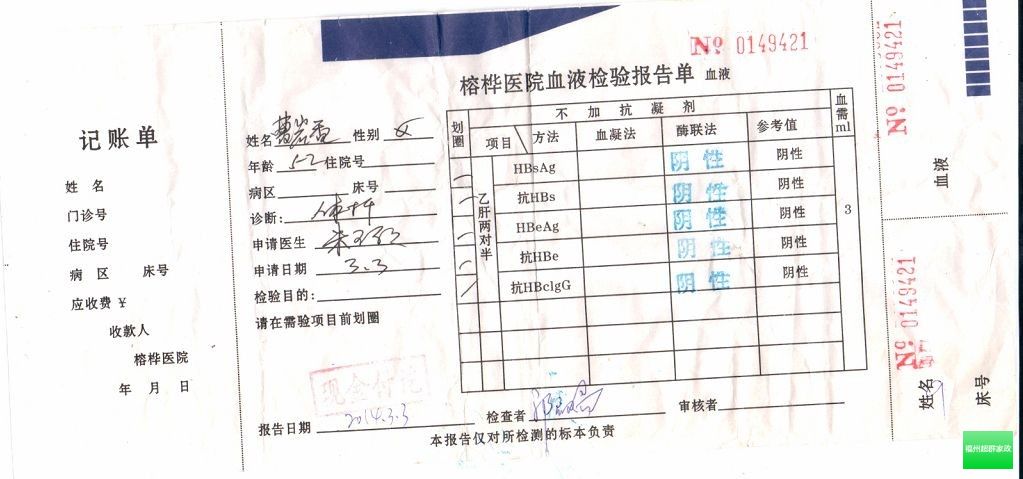 记账单
姓 名
门诊号
住院号
病 区 床号
应收费 ¥
收款人
榕桦医院
年 月 日
№ 0149421
榕桦医院血液检验报告单 血液
姓名 性别 女
年龄 52 住院号
病区 床号
诊断: 体检
申请医生
申请日期 3.3
检验目的:
请在需验项目前划圈
现金付讫
划圈 不加抗凝剂 血需ml
项目 方法 血凝法 酶联法 参考值
乙肝两对半
HBsAg 阴性 阴性
抗HBs 阴性 阴性
HBeAg 阴性 阴性
抗HBe 阴性 阴性
抗HBclgG 阴性 阴性
3
报告日期 2014.3.3 检查者 审核者
本报告仅对所检测的标本负责
№ 0149421
血液
№ 0149421
姓名
床号
福州超群家政